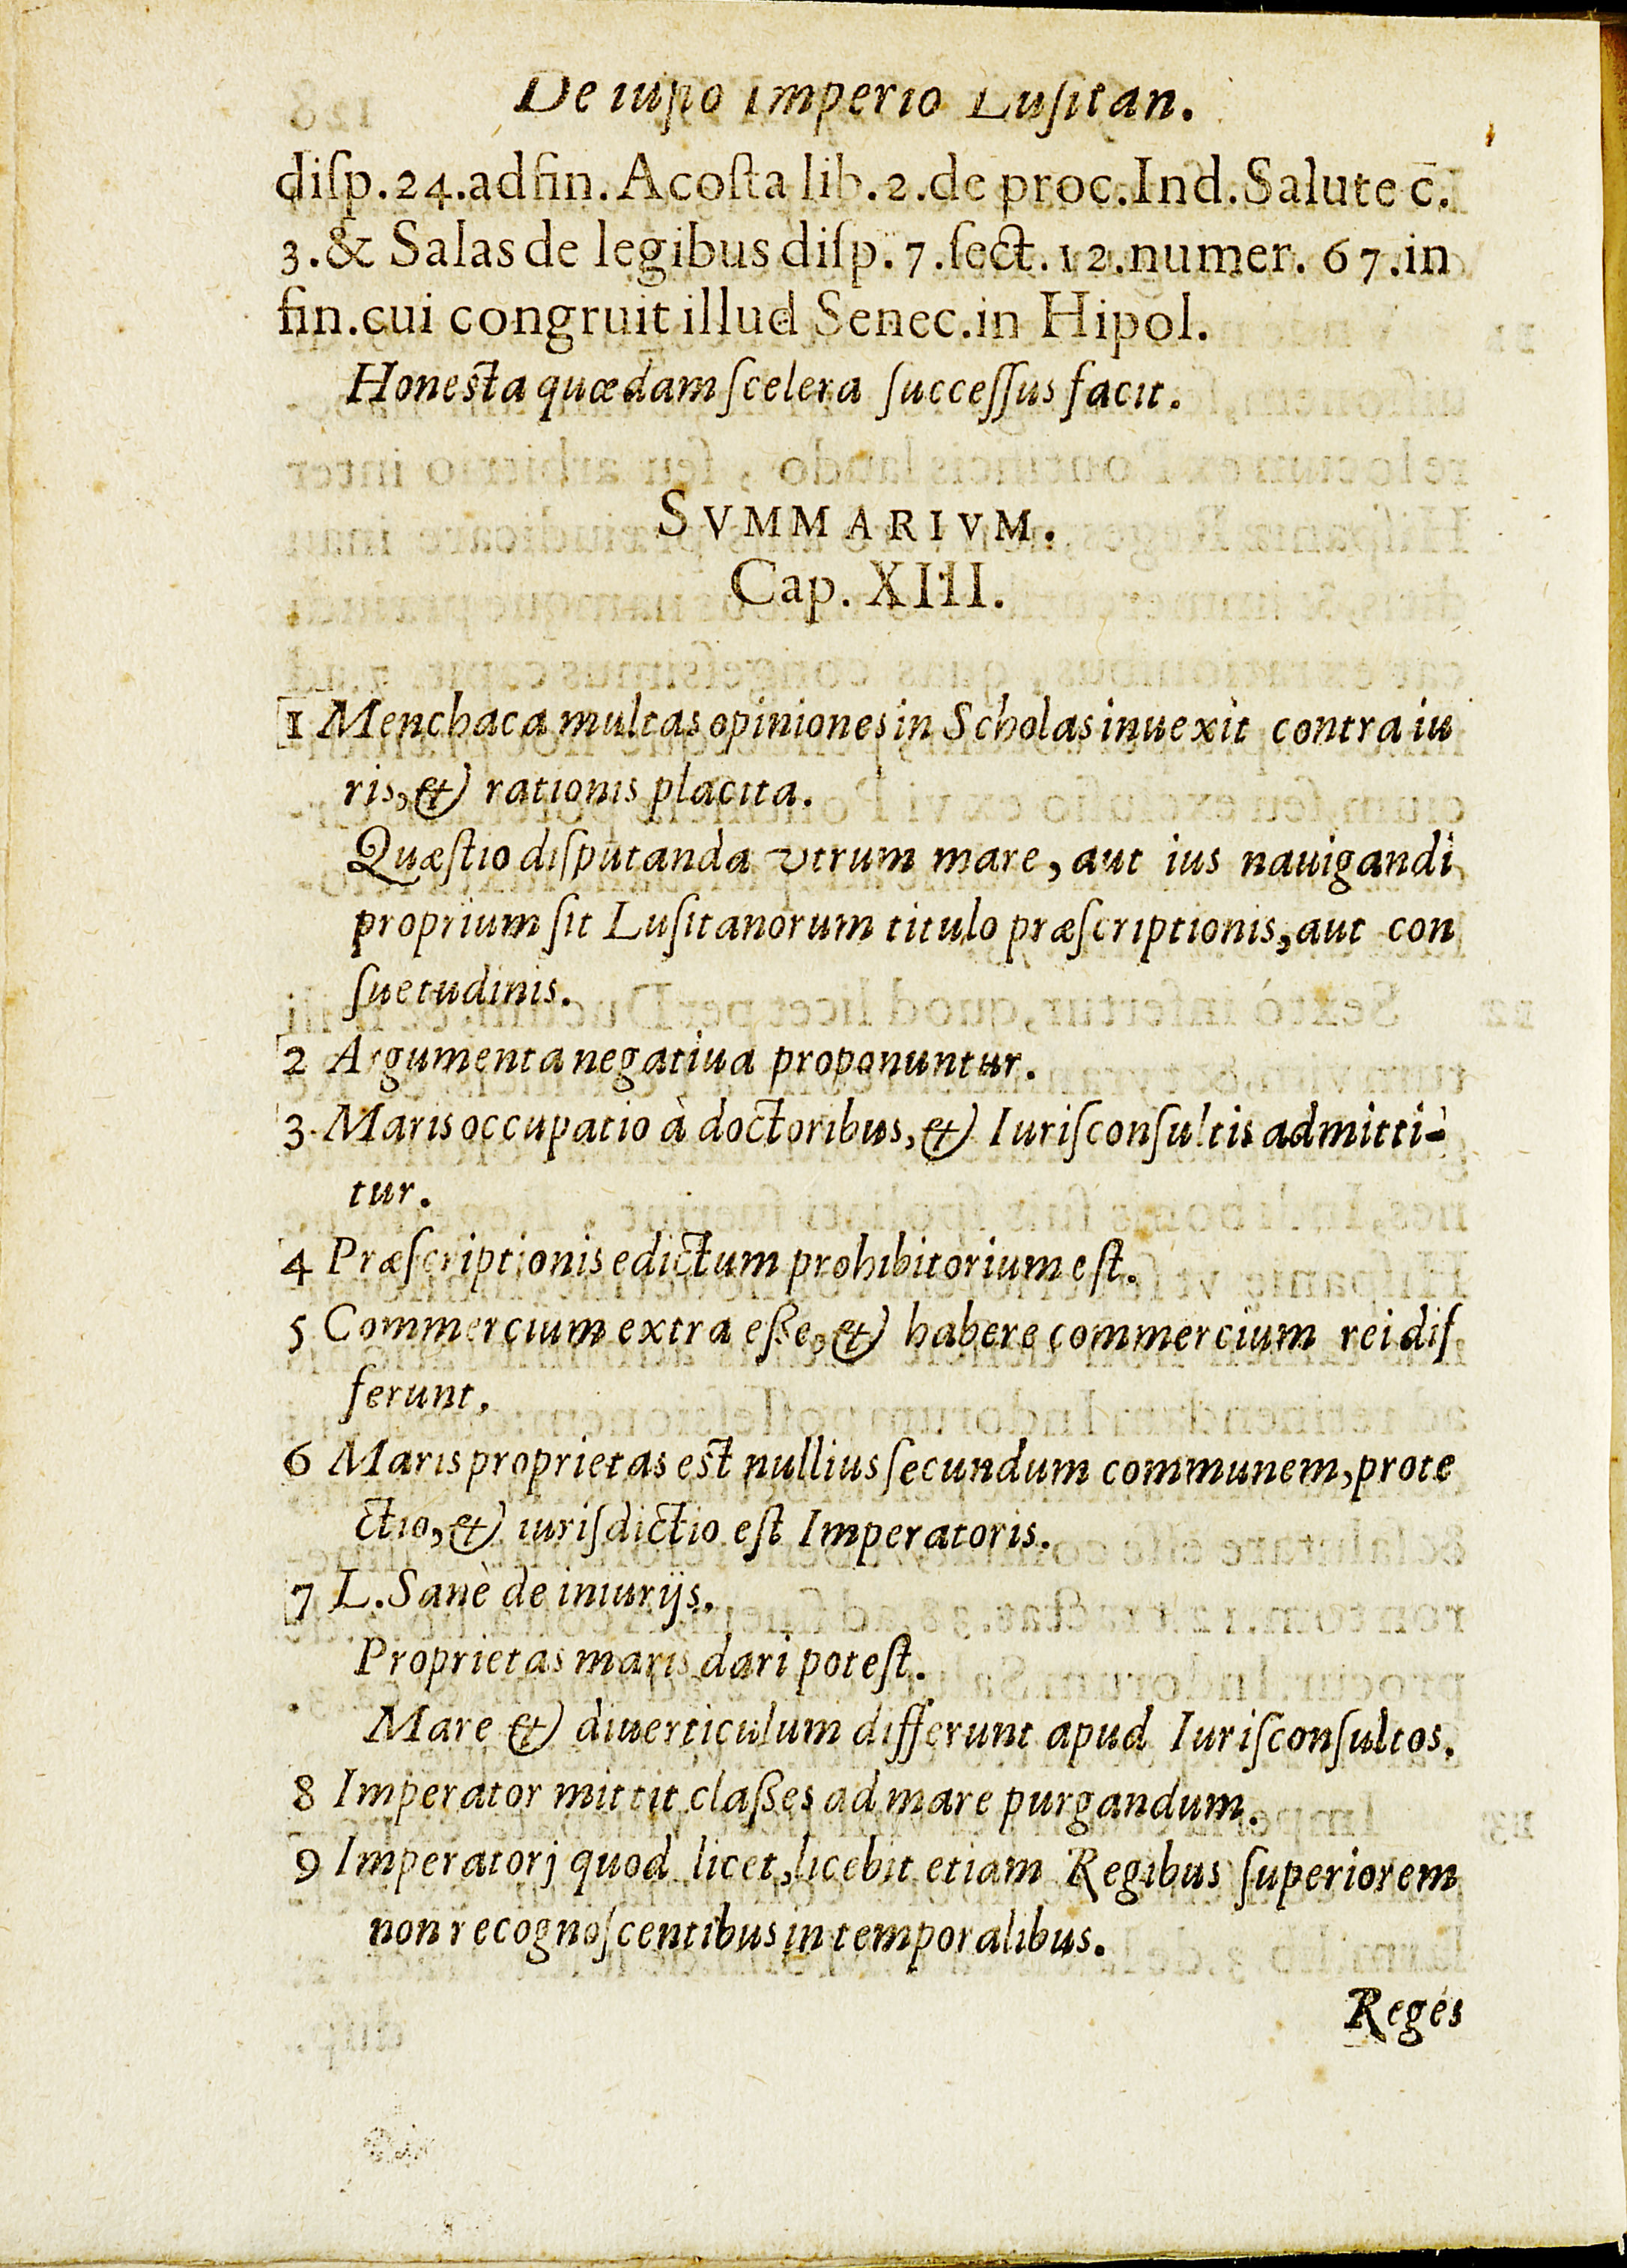 De iusto Imperio Lusitan.
disp.24.adfin.Acosta lib.2.de proc.Ind.Salute c̄.
3.& Salas de legibus disp.7.sect.12.numer. 67.in
fin.cui congruit illud Senec.in Hipol.
Honesta quædam scelera successus facit.
SVMMARIVM.
Cap. XIIII.
1 Menchaca multas opiniones in Scholas inuexit contra iu
ris, & rationis placita.
Quæstio disputanda vtrum mare, aut ius nauigandi
proprium sit Lusitanorum titulo præscriptionis, aut con
suetudinis.
2 Argumenta negatiua proponuntur.
3 Maris occupatio à doctoribus, & Iurisconsultis admitti-
tur.
4 Præscriptionis edictum prohibitorium est.
5 Commercium extra esse, & habere commercium rei dif
ferunt.
6 Maris proprietas est nullius secundum communem, prote
ctio, & iurisdictio est Imperatoris.
7 L.Sanè de iniurijs.
Proprietas maris dari potest.
Mare & diuerticulum differunt apud Iurisconsultos.
8 Imperator mittit classes ad mare purgandum.
9 Imperatori quod licet, licebit etiam Regibus superiorem
non recognoscentibus in temporalibus.
Reges